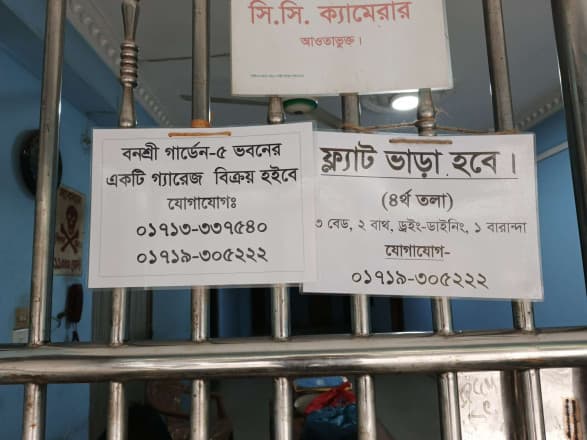 সি.সি. ক্যামেরার
আওতাভুক্ত।
বনশ্রী গার্ডেন-৫ ভবনের
একটি গ্যারেজ বিক্রয় হইবে
যোগাযোগঃ
০১৭১৩-৩৩৭৫৪০
০১৭১৯-৩০৫২২২
ফ্ল্যাট ভাড়া হবে।
(৪র্থ তলা)
৩ বেড, ২ বাথ, ড্রইং-ডাইনিং, ১ বারান্দা
যোগাযোগ-
০১৭১৯-৩০৫২২২